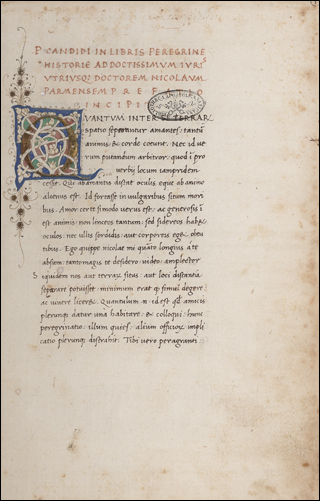 P CANDIDI IN LIBRIS PEREGRINE
HISTORIE AD DOCTISSIMUM IURIS
UTRIUSQ; DOCTOREM NICOLAUM
PARMENSEM PREFATIO
INCIPIT
QVANTVM INTER SE TERRAR
spatio seperentur amantes: tantū
animis & corde coeunt. Nec id ue
rum putandum arbitror: quod ī pro
uerbij locum iampridem
cessit. Qui ab oculis eque ab animo
alienus est. Id fortasse in uulgaribus situm mori
bus. Amor certe simodo uerus est: ac generosis ī
est animis: non lences tantum: sed sidereos habet
oculos: nec ullis sordidis: aut corporeis eget obtu
tibus. Ego quippe nicolae mi quāto longius a te
absem: tantomagis te desidero: uideo: amplector
siquidem nos aut terrarum situs: aut loci distantia
separare potuisset: minimum erat q simul degere:
ac uiuere liceret. Quantulum .n. id est qd amicis
plerunq datur una habitare: & colloqui: hunc
peregrinatio: illum quies: alium officiorum impli
catio plerunq distrahit: Tibi uero peragranti